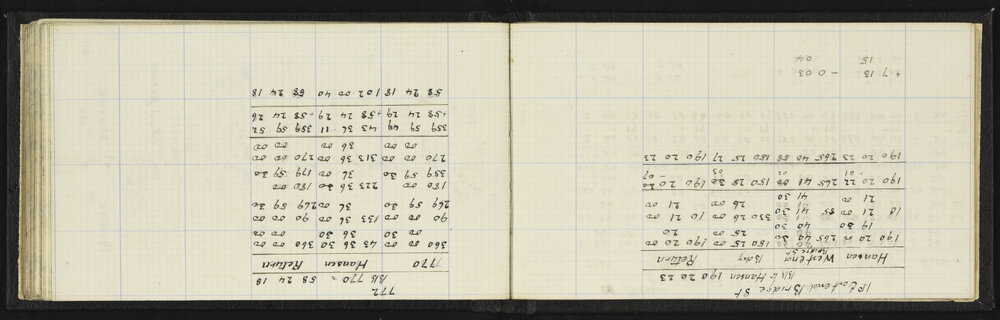 Bridge St
Hansen 190 20 23
Hansen Westend Bdy Return
Bridge St
190 20 00 265 40 30 150 25 00 190 20 00
19 30 40 30 25 00 20
10 21 00 85 41 30 330 26 00 10 21 00
21 00 41 30 26 00 21 00
190 20 22 265 41 00 150 25 30 190 20 30
-01 02 03 -07
190 20 23 265 40 58 150 25 27 190 20 23
+ 7 13 - 0 03
15 04
772
770 58 24 18
7770 Hansen Return
360 00 00 43 36 30 360 00 00
00 30 36 30 00
90 00 00 133 36 00 90 00 00
269 59 30 36 00 269 59 30
180 00 223 36 30 180 00
359 59 30 36 00 179 59 30
270 00 00 313 36 00 270 00 00
00 00 36 00 00 00
359 59 49 43 36 11 359 59 52
+58 24 29 +58 24 29 +58 24 26
58 24 18 102 00 40 58 24 18